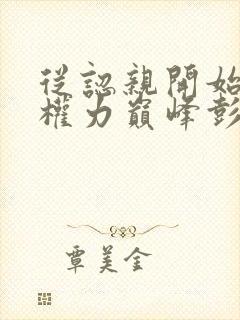 從認親開始
權力巔峰彭
覃美金